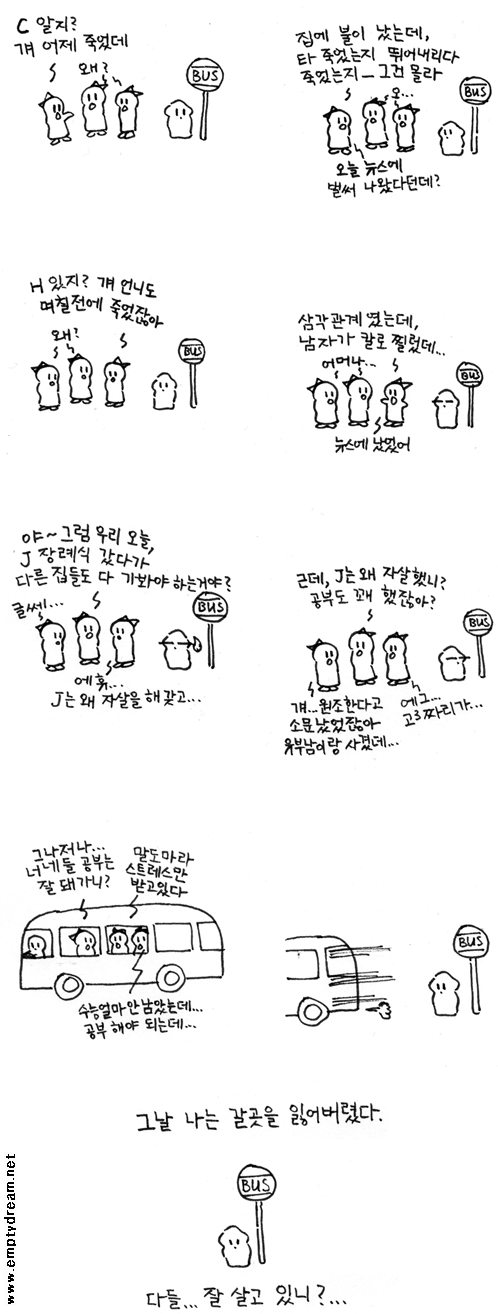 C 알지?
걔 어제 죽었데
왜?
BUS
집에 불이 났는데,
타 죽었는지 뛰어내리다
죽었는지_그건 몰라
오...
BUS
오늘 뉴스에
벌써 나왔다던데?
H 있지? 걔 언니도
며칠전에 죽었잖아
왜?
BUS
삼각관계 였는데,
남자가 칼로 찔렀데...
어머나...
BUS
뉴스에 났었어
야~그럼 우리 오늘,
J 장례식 갔다가
다른 집들도 다 가봐야 하는거야?
글쎄...
BUS
에휴...
J는 왜 자살을 해 갖고...
근데, J는 왜 자살했니?
공부도 꽤 했잖아?
BUS
걔...원조한다고
소문났었잖아
유부남이랑 사겼데...
에그...
고3짜리가...
그나저나...
너네들 공부는
잘 돼가니?
말도마라
스트레스만
받고있다
수능얼마안남았는데...
공부해야 되는데...
BUS
그날 나는 갈곳을 잃어버렸다.
BUS
다들... 잘 살고 있니?...
www.emptydream.net